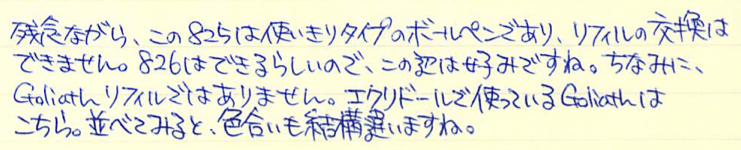 残念ながら、この825は使いきりタイプのボールペンであり、リフィルの交換は
できません。826はできるらしいので、この辺は好みですね。ちなみに、
Goliathリフィルではありません。エクリドールで使っているGoliathは
こちら。並べてみると、色合いも結構違いますね。